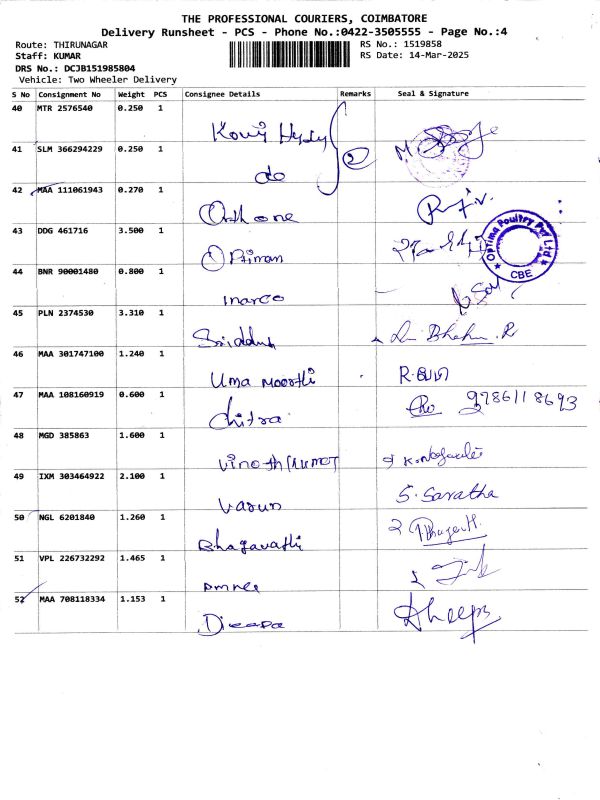 THE PROFESSIONAL COURIERS, COIMBATORE
Delivery Runsheet - PCS - Phone No.:0422-3505555 - Page No.:4
Route: THIRUNAGAR RS No.: 1519858
Staff: KUMAR RS Date: 14-Mar-2025
DRS No.: DCJB151985804
Vehicle: Two Wheeler Delivery
S No Consignment No Weight PCS Consignee Details Remarks Seal & Signature
40 MTR 2576540 0.250 1
41 SLM 366294229 0.250 1
do
42 MAA 111061943 0.270 1
43 DDG 461716 3.500 1
Optima Poultry Pvt Ltd
CBE
44 BNR 90001480 0.800 1
marco
45 PLN 2374530 3.310 1
46 MAA 301747100 1.240 1
Uma Moorthi
47 MAA 108160919 0.600 1
Chitra 9786118693
48 MGD 385863 1.600 1
49 IXM 303464922 2.100 1
Varun S. Saratha
50 NGL 6201840 1.260 1
Bhagavathi
51 VPL 226732292 1.465 1
52 MAA 708118334 1.153 1
Dheeps